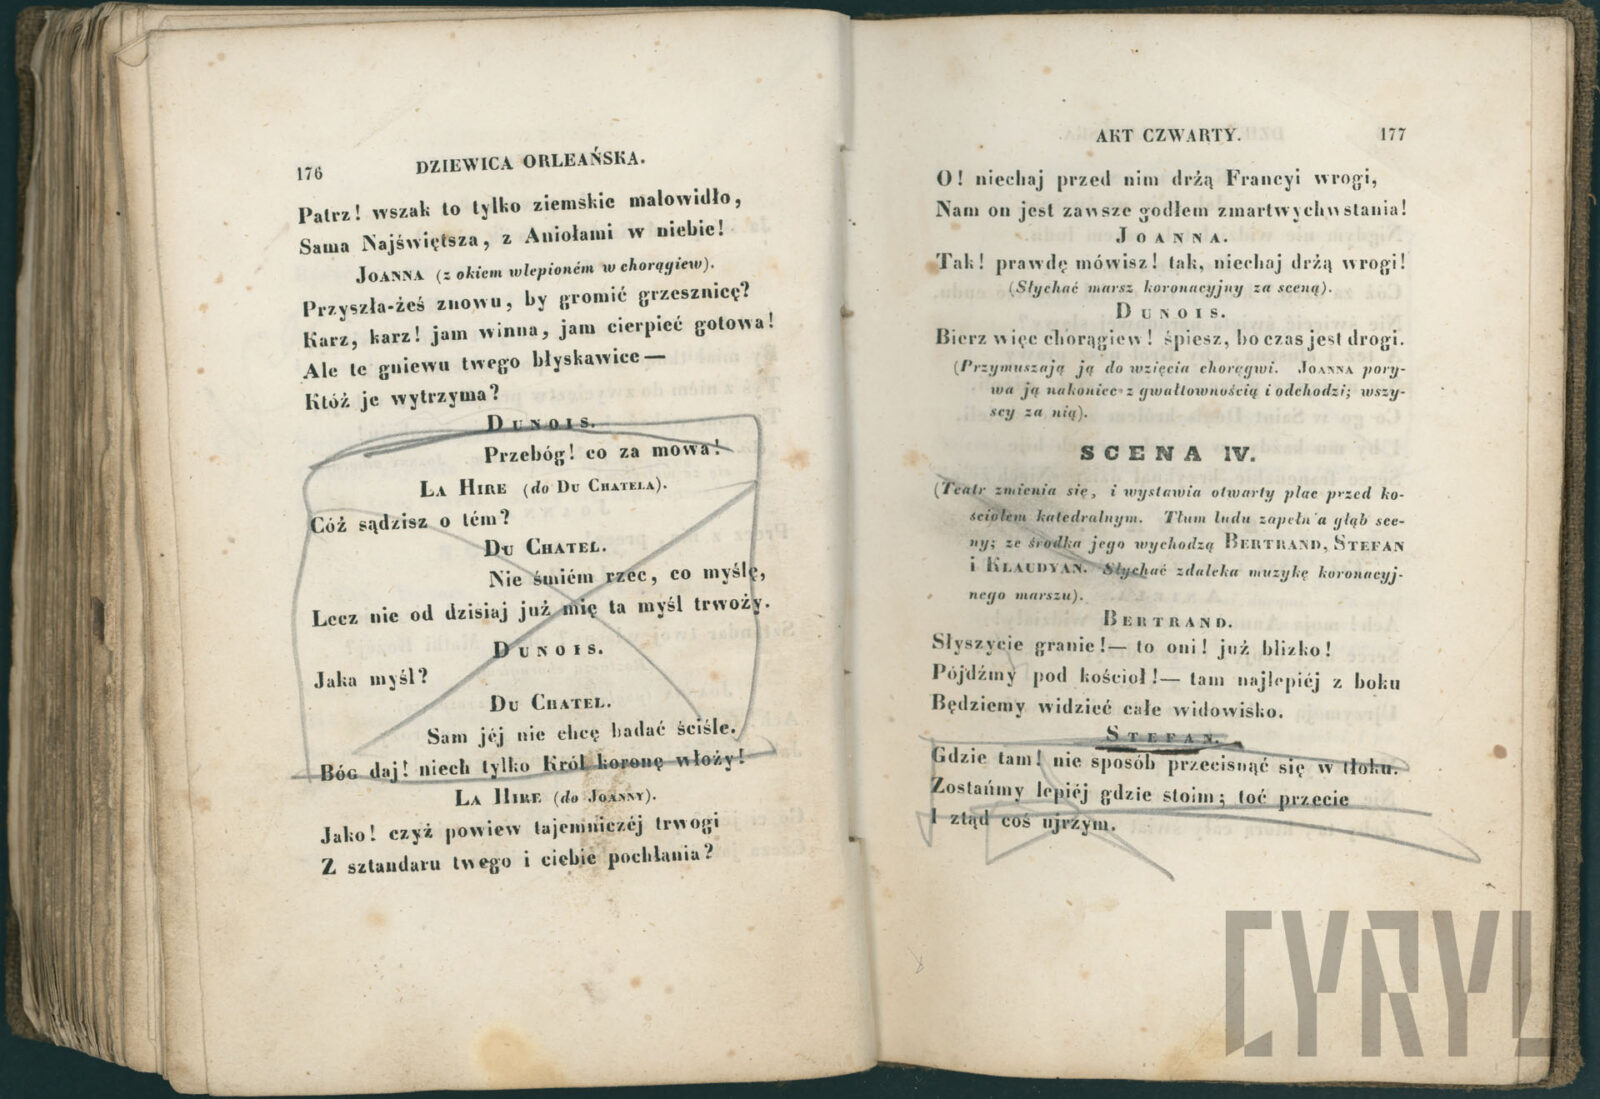 176
DZIEWICA ORLEAŃSKA.
Patrz! wszak to tylko ziemskie malowidło,
Sama Najświętsza, z Aniołami w niebie!
JOANNA (z okiem wlepioném w chorągiew).
Przyszła-żeś znowu, by gromić grzesznicę?
Karz, karz! jam winna, jam cierpieć gotowa!
Ale te gniewu twego błyskawice—
Któż je wytrzyma?
DUNOIS.
Przebóg! co za mowa!
LA HIRE (do DU CHATELA).
Cóż sądzisz o tém?
DU CHATEL.
Nie śmiém rzec, co myślę,
Lecz nie od dzisiaj już mię ta myśl trwoży.
DUNOIS.
Jaka myśl?
DU CHATEL.
Sam jéj nie chcę badać ściśle.
Bóg daj! niech tylko Król koronę włoży!
LA HIRE (do JOANNY).
Jako! czyż powiew tajemniczéj trwogi
Z sztandaru twego i ciebie pochłania?
AKT CZWARTY.
177
O! niechaj przed nim drżą Francyi wrogi,
Nam on jest zawsze godłem zmartwychwstania!
JOANNA.
Tak! prawdę mówisz! tak, niechaj drżą wrogi!
(Słychać marsz koronacyjny za sceną).
DUNOIS.
Bierz więc chorągiew! śpiesz, bo czas jest drogi.
(Przymuszają ją do wzięcia choręgwi. JOANNA pory-
wa ją nakoniec z gwałtownością i odchodzi; wszy-
scy za nią).
SCENA IV.
(Teatr zmienia się, i wystawia otwarty plac przed ko-
ściołem katedralnym. Tłum ludu zapełnia głąb sce-
ny; ze środka jego wychodzą BERTRAND, STEFAN
i KLAUDYAN. Słychać zdaleka muzykę koronacyj-
nego marszu).
BERTRAND.
Słyszycie granie!— to oni! już blizko!
Pójdźmy pod kościoł!— tam najlepiéj z boku
Będziemy widzieć całe widowisko.
STEFAN.
Gdzie tam! nie sposób przecisnąć się w tłoku.
Zostańmy lepiéj gdzie stoim; toć przecie
I ztąd coś ujrzym.
CYRYL